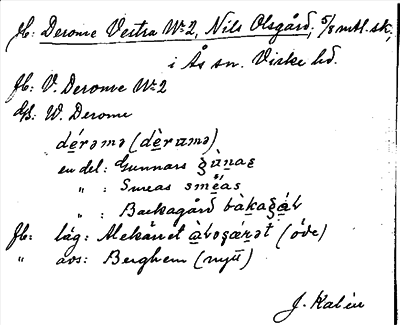 H: Derome Vestra No 2, Nils Olsgård, 5/8 mtl. sk.,
i Ås sn. Virke hd.
Jb: V. Derome No 2
GB: W. Derome
dérəmə (dèrumə)
en del: Gunnars gùnas
" : Smeas sméas
" : Backagård bàkagáɽ
Jb: låg: Alekärret (öde)
" avs: Berghem (nytt)
J. Kalén